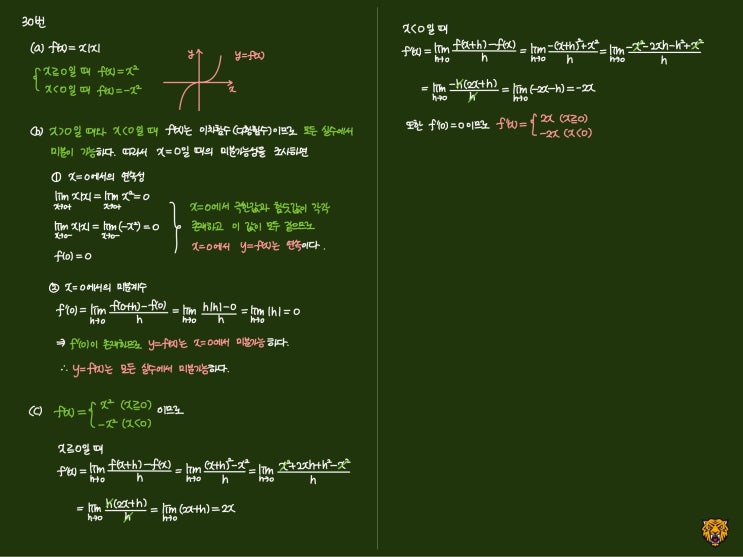 30번
(a) f(x) = x|x|
x≥0일 때 f(x) = x²
x<0일 때 f(x) = -x²
y
y=f(x)
x
(b) x>0일 때와 x<0일 때 f(x)는 이차함수(다항함수)이므로 모든 실수에서
미분이 가능하다. 따라서 x=0일 때의 미분가능성을 조사하면
① x=0에서의 연속성
lim_{x→0+} x|x| = lim_{x→0+} x² = 0
lim_{x→0-} x|x| = lim_{x→0-} (-x²) = 0
f(0) = 0
x=0에서 극한값과 함숫값이 각각
존재하고 이 값이 모두 같으므로
x=0에서 y=f(x)는 연속이다.
② x=0에서의 미분계수
f'(0) = lim_{h→0} \frac{f(0+h)-f(0)}{h} = lim_{h→0} \frac{h|h|-0}{h} = lim_{h→0} |h| = 0
⇒ f'(0)이 존재하므로 y=f(x)는 x=0에서 미분가능하다.
∴ y=f(x)는 모든 실수에서 미분가능하다.
(c) f(x) = { x² (x≥0) 이므로
-x² (x<0)
x≥0일 때
f'(x) = lim_{h→0} \frac{f(x+h)-f(x)}{h} = lim_{h→0} \frac{(x+h)²-x²}{h} = lim_{h→0} \frac{x²+2xh+h²-x²}{h}
= lim_{h→0} \frac{h(2x+h)}{h} = lim_{h→0} (2x+h) = 2x
x<0일 때
f'(x) = lim_{h→0} \frac{f(x+h)-f(x)}{h} = lim_{h→0} \frac{-(x+h)²+x²}{h} = lim_{h→0} \frac{-x²-2xh-h²+x²}{h}
= lim_{h→0} \frac{-h(2x+h)}{h} = lim_{h→0} (-2x-h) = -2x
또한 f'(0)=0이므로 f'(x) = { 2x (x≥0)
-2x (x<0)